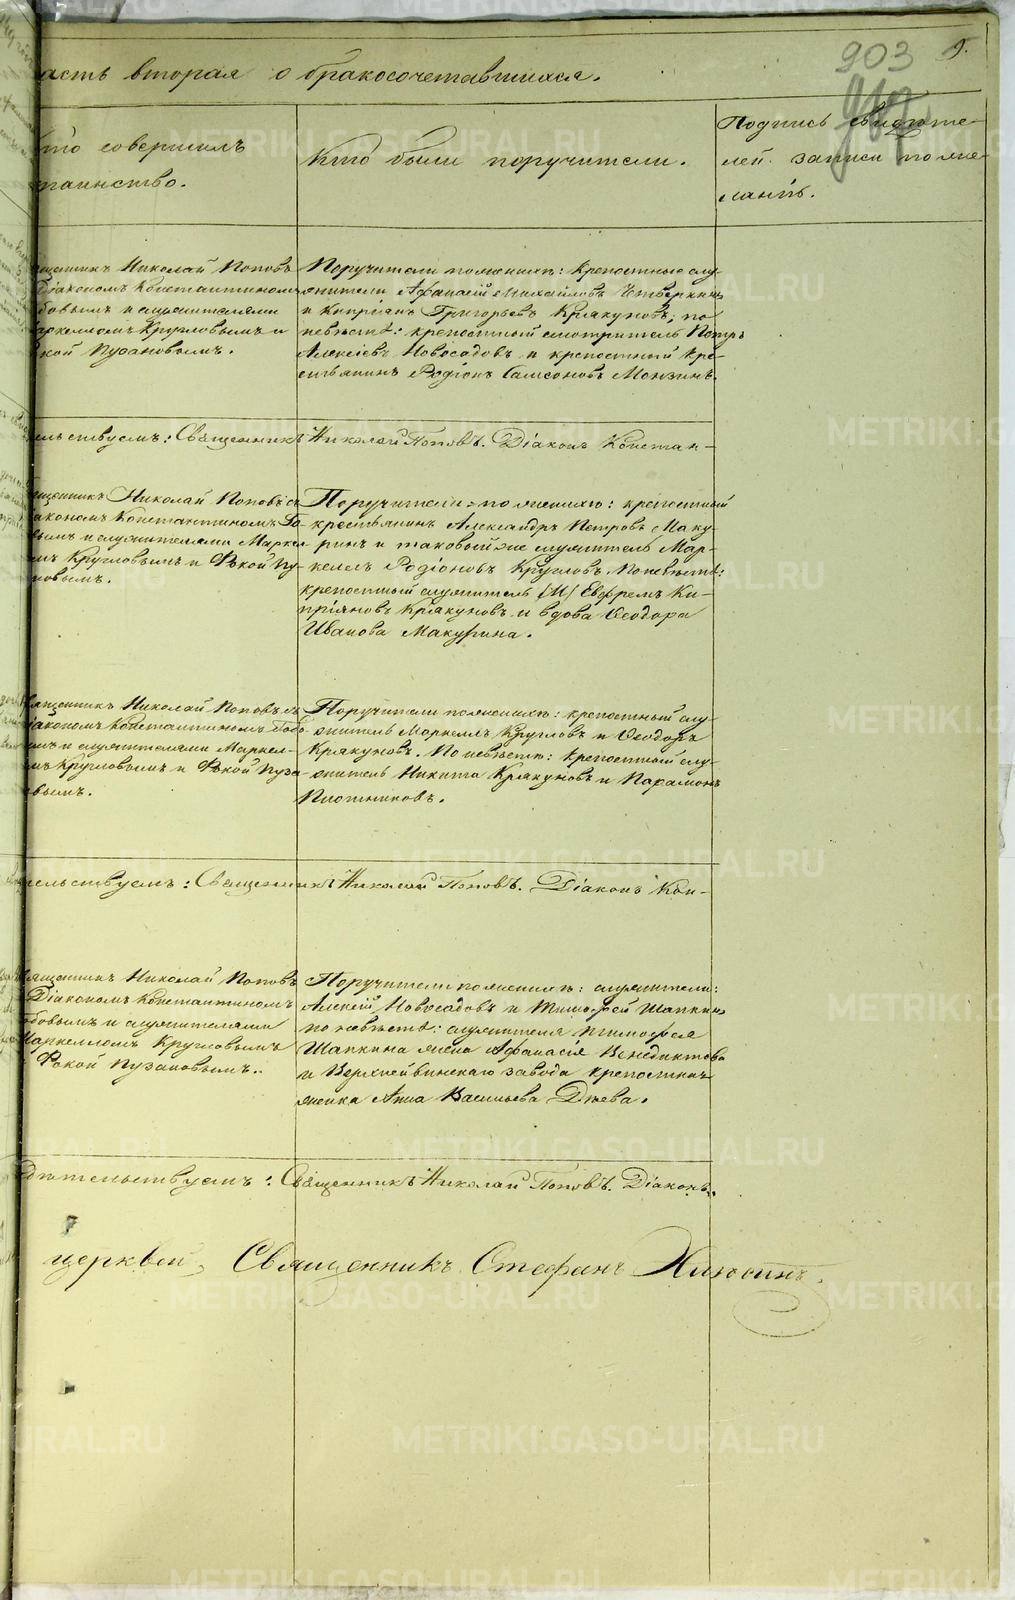 903
9.
асть вторая о бракосочетавшихся.
то совершилъ
таинство.
Кто были поручители.
Подпись свидѣте-
лей записи по же-
ланію.
щенникъ Николай Поповъ
Діакономъ Константиномъ
бовымъ и служителями
аркелломъ Кругловымъ и
кой Пузановымъ.
Поручители по женихѣ: крепостные слу-
жители Афанасій Михайловъ Четверкинъ
и Кипріанъ Григорьевъ Крякуновъ; по
невѣстѣ: крепостный смотритель Петръ
Алексіевъ Новосадовъ и крепостный кре-
стьянинъ Родіонъ Самсоновъ Монзинъ.
тельствуемъ: Священникъ Николай Поповъ. Діаконъ Констан-
щенникъ Николай Поповъ съ
акономъ Константиномъ Го-
вымъ и служителями Маркел-
мъ Кругловымъ и Фокой Пу-
новымъ.
Поручители по женихѣ: крепостный
крестьянинъ Александръ Петровъ Маку-
ринъ и таковый же служитель Мар-
келлъ Родіоновъ Кругловъ. По невѣстѣ:
крепостный служитель Евфремъ Ки-
пріяновъ Крякуновъ и вдова Ѳеодора
Иванова Макурина.
вященникъ Николай Поповъ съ
іакономъ Константиномъ Гобо-
ымъ и служителями Маркел-
мъ Кругловымъ и Фокой Пуза-
вымъ.
Поручители по женихѣ: крепостный слу-
житель Маркеллъ Кругловъ и Ѳеодоръ
Крякуновъ. По невѣстѣ: крепостный слу-
житель Никита Крякуновъ и Парамонъ
Плотниковъ.
тельствуемъ: Священникъ Николай Поповъ. Діаконъ Кон-
вященникъ Николай Поповъ
Діакономъ Константиномъ
обовымъ и служителями
Маркелломъ Кругловымъ
Фокой Пузановымъ.
Поручители по женихѣ: служители:
Алексій Новосадовъ и Тимофей Шапкинъ
по невѣстѣ: служителя Тимофея
Шапкина жена Афанасія Венедиктова
и Верхнейвинскаго завода крепостная
женка Анна Васильева Дѣева.
дѣтельствуемъ: Священникъ Николай Поповъ. Діаконъ
церквей, Священникъ Стефанъ Хлюсинъ.
METRIKI.GASO-URAL.RU